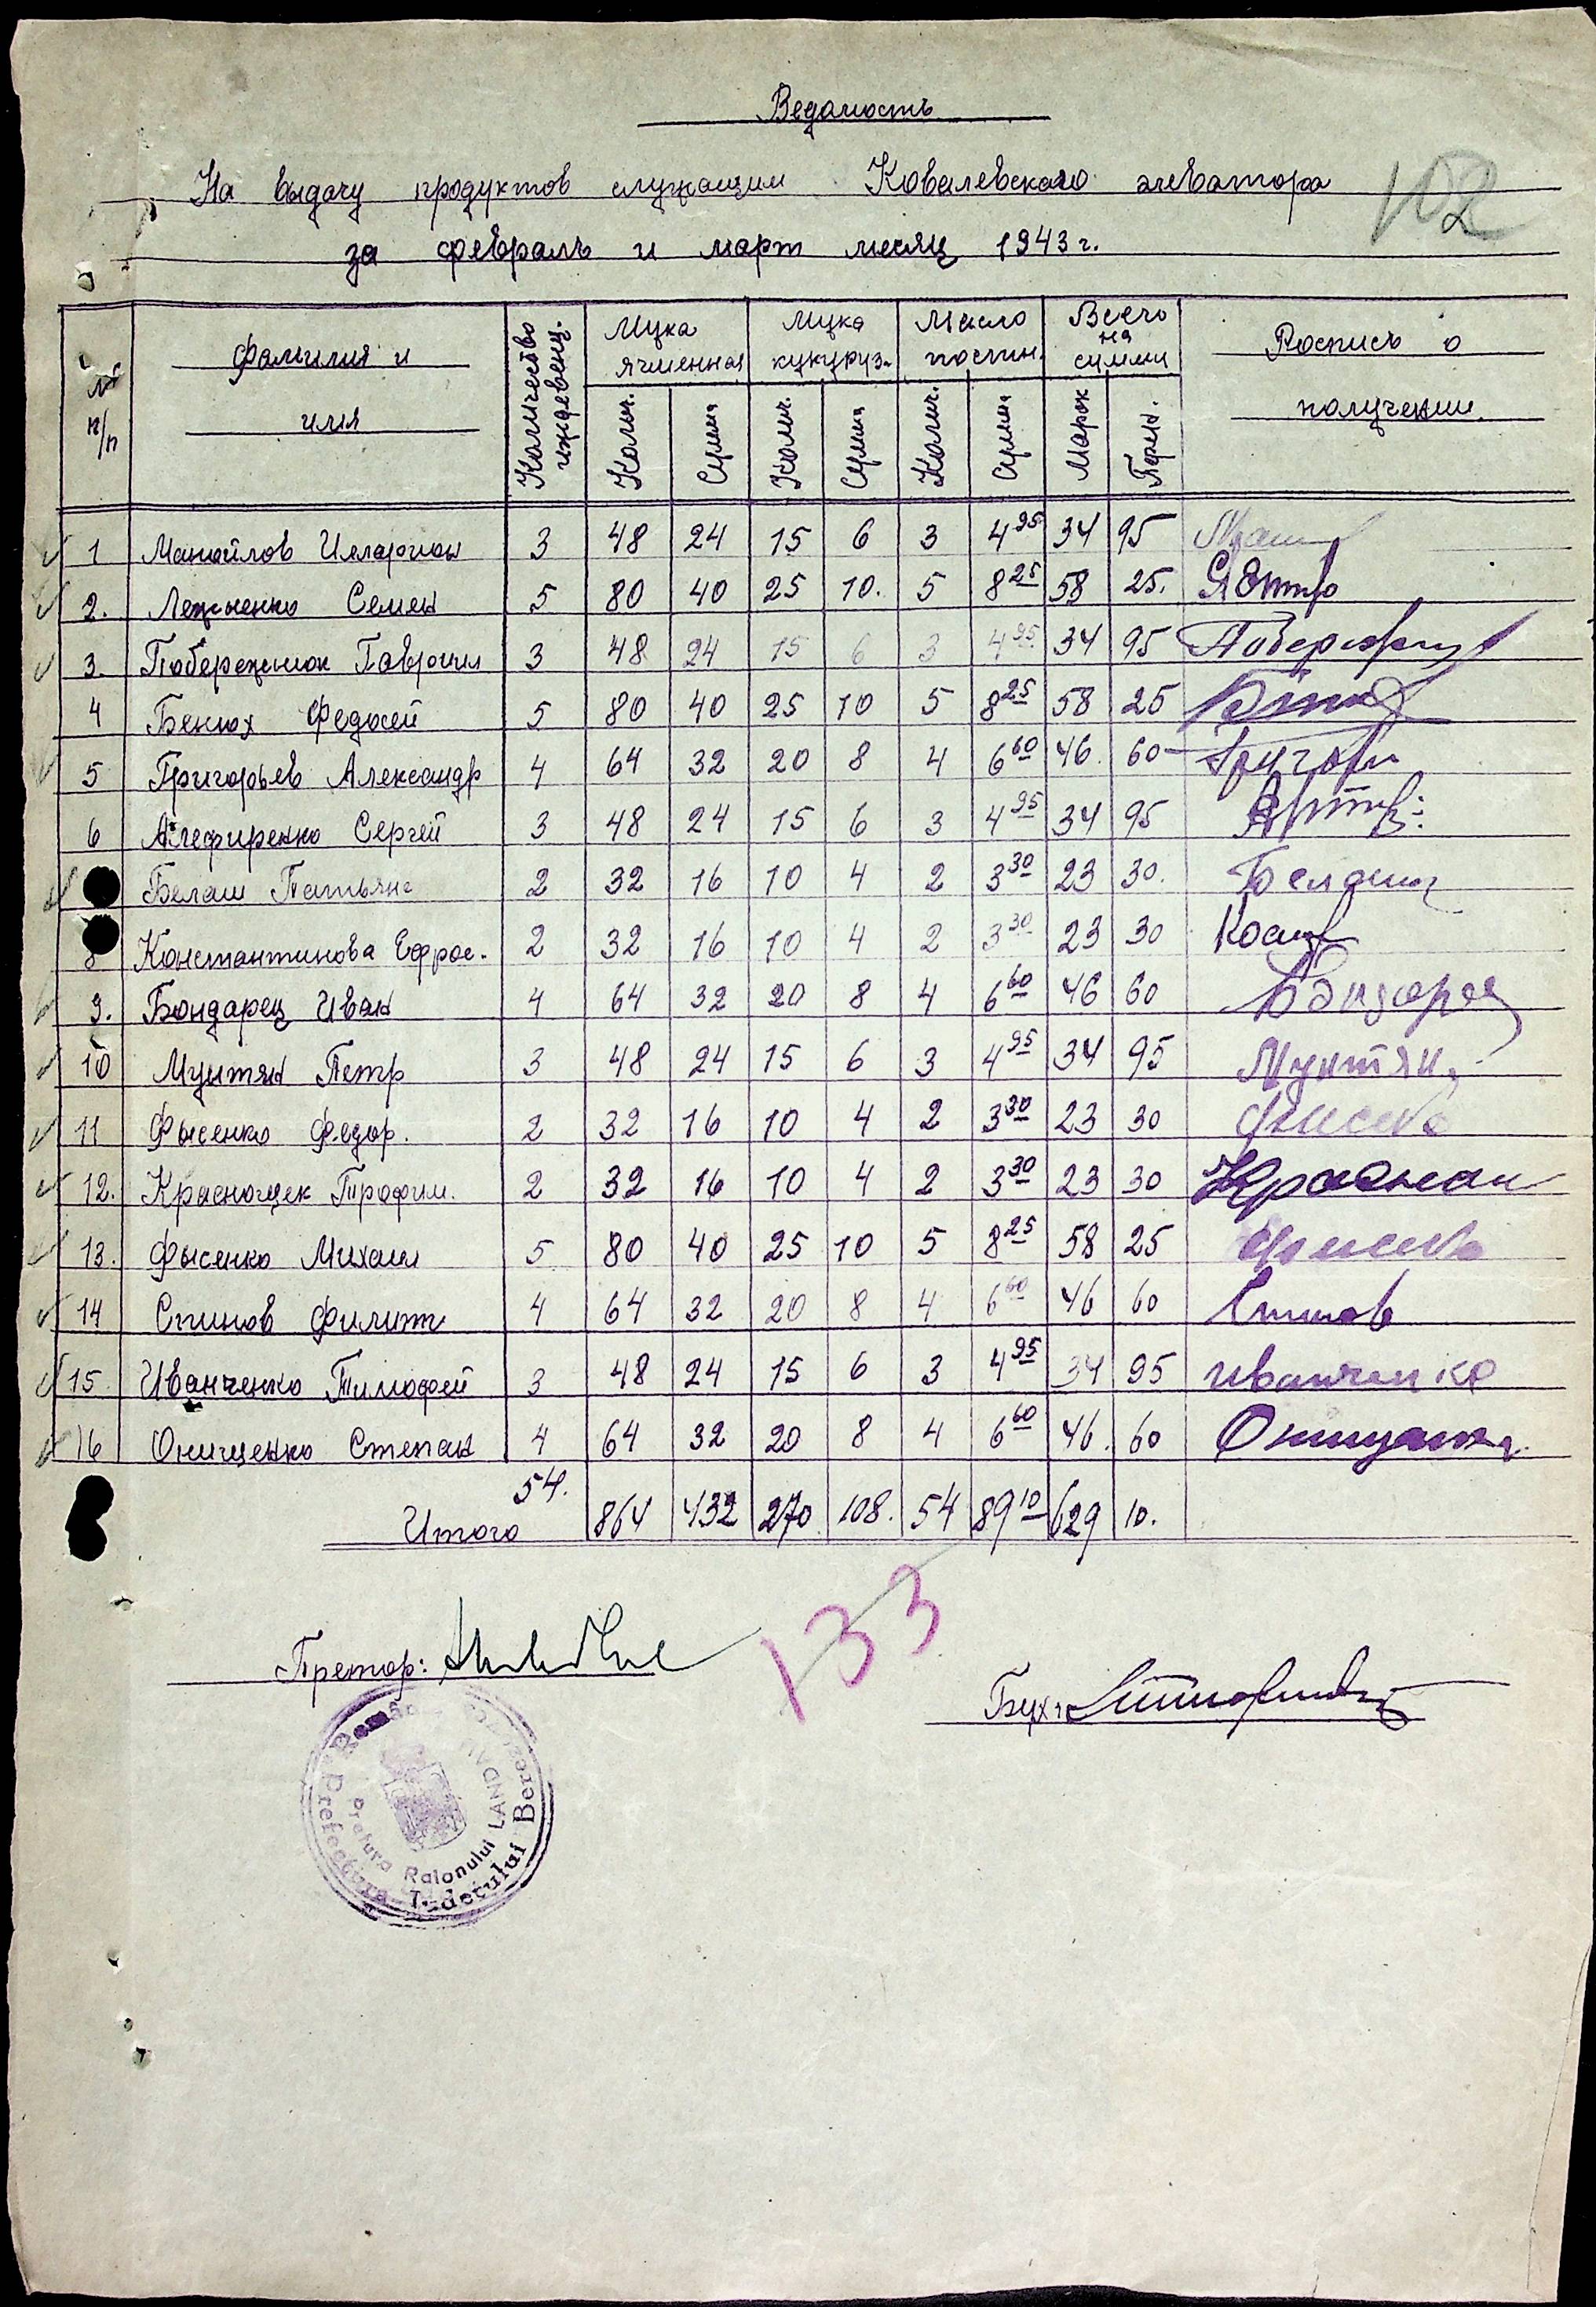 Ведомость
На выдачу продуктов служащим Ковалевского элеватора
102
за февраль и март месяц 1943 г.
№ п/п Фамилия и имя Количество иждевенц. Мука ячменная Мука кукуруз. Масло постн. Всего на сумми Роспись о получении.
Колич. Сумма Колич. Сумма Колич. Сумма Марок Пфен.
1 Манойлов Иларион 3 48 24 15 6 3 4 95 34 95
2. Лежненко Семен 5 80 40 25 10. 5 8 25 58 25.
3. Побережнюк Гавриил 3 48 24 15 6 3 4 95 34 95
4 Бенюх Федосей 5 80 40 25 10 5 8 25 58 25
5 Григорьев Александр 4 64 32 20 8 4 6 60 46. 60
6 Алефиренко Сергей 3 48 24 15 6 3 4 95 34 95
Белаш Татьяна 2 32 16 10 4 2 3 30 23 30.
8 Константинова Ефрос. 2 32 16 10 4 2 3 30 23 30
9. Бондарец Иван 4 64 32 20 8 4 6 60 46 60
10 Мунтян Петр 3 48 24 15 6 3 4 95 34 95 Мунтян
11 Фысенко Федор. 2 32 16 10 4 2 3 30 23 30
12. Краснощек Трофим. 2 32 16 10 4 2 3 30 23 30
13. Фысенко Михаил 5 80 40 25 10 5 8 25 58 25
14 Спинов Филипп 4 64 32 20 8 4 6 60 46 60 Спинов
15 Иванченко Тимофей 3 48 24 15 6 3 4 95 34 95 Иванченко
16 Онищенко Степан 4 64 32 20 8 4 6 60 46. 60
Итого 54. 864 432 270 108. 54 89 10 629 10.
133
Претор:
Бухг.
România
Prefectura Judetului Berezovca
Pretura Raionului LANDAU